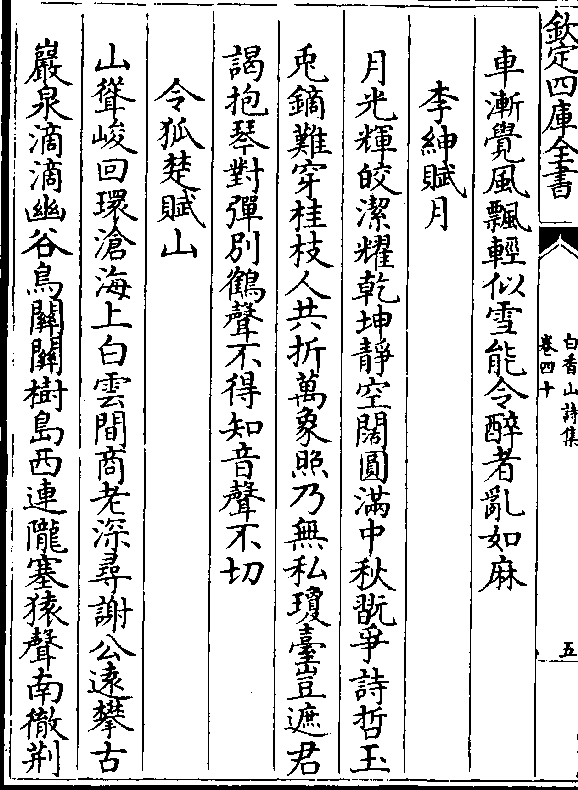 欽定四庫全書
白香山詩集
卷四十
五
車漸覺風飄輕似雪能令醉者亂如麻
李紳賦月
月光輝皎潔耀乾坤靜空闊圓滿中秋翫爭詩哲玉
兎鏑難穿桂枝人共折萬象照乃無私瓊臺豈遮君
謁抱琴對彈别鶴聲不得知音聲不切
令狐楚賦山
山聳峻回環滄海上白雲間商老深尋謝公逺攀古
巖泉滴滴幽谷鳥關關樹島西連隴塞猿聲南徹荆